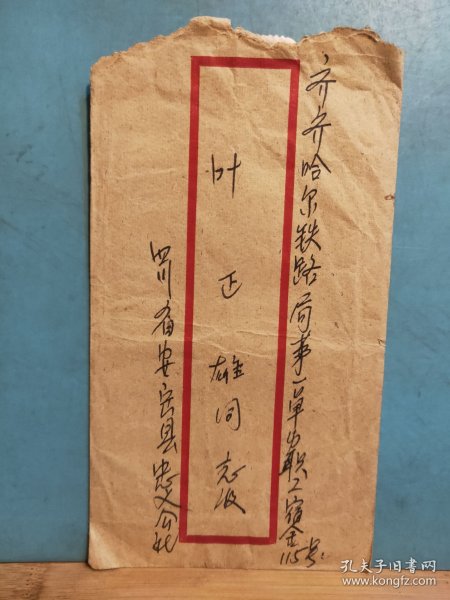 齐齐哈尔铁路局第一单身职工宿舍115号
叶正雄同志收
四川省安岳县忠义公社
孔夫子旧书网
www.kongfz.com